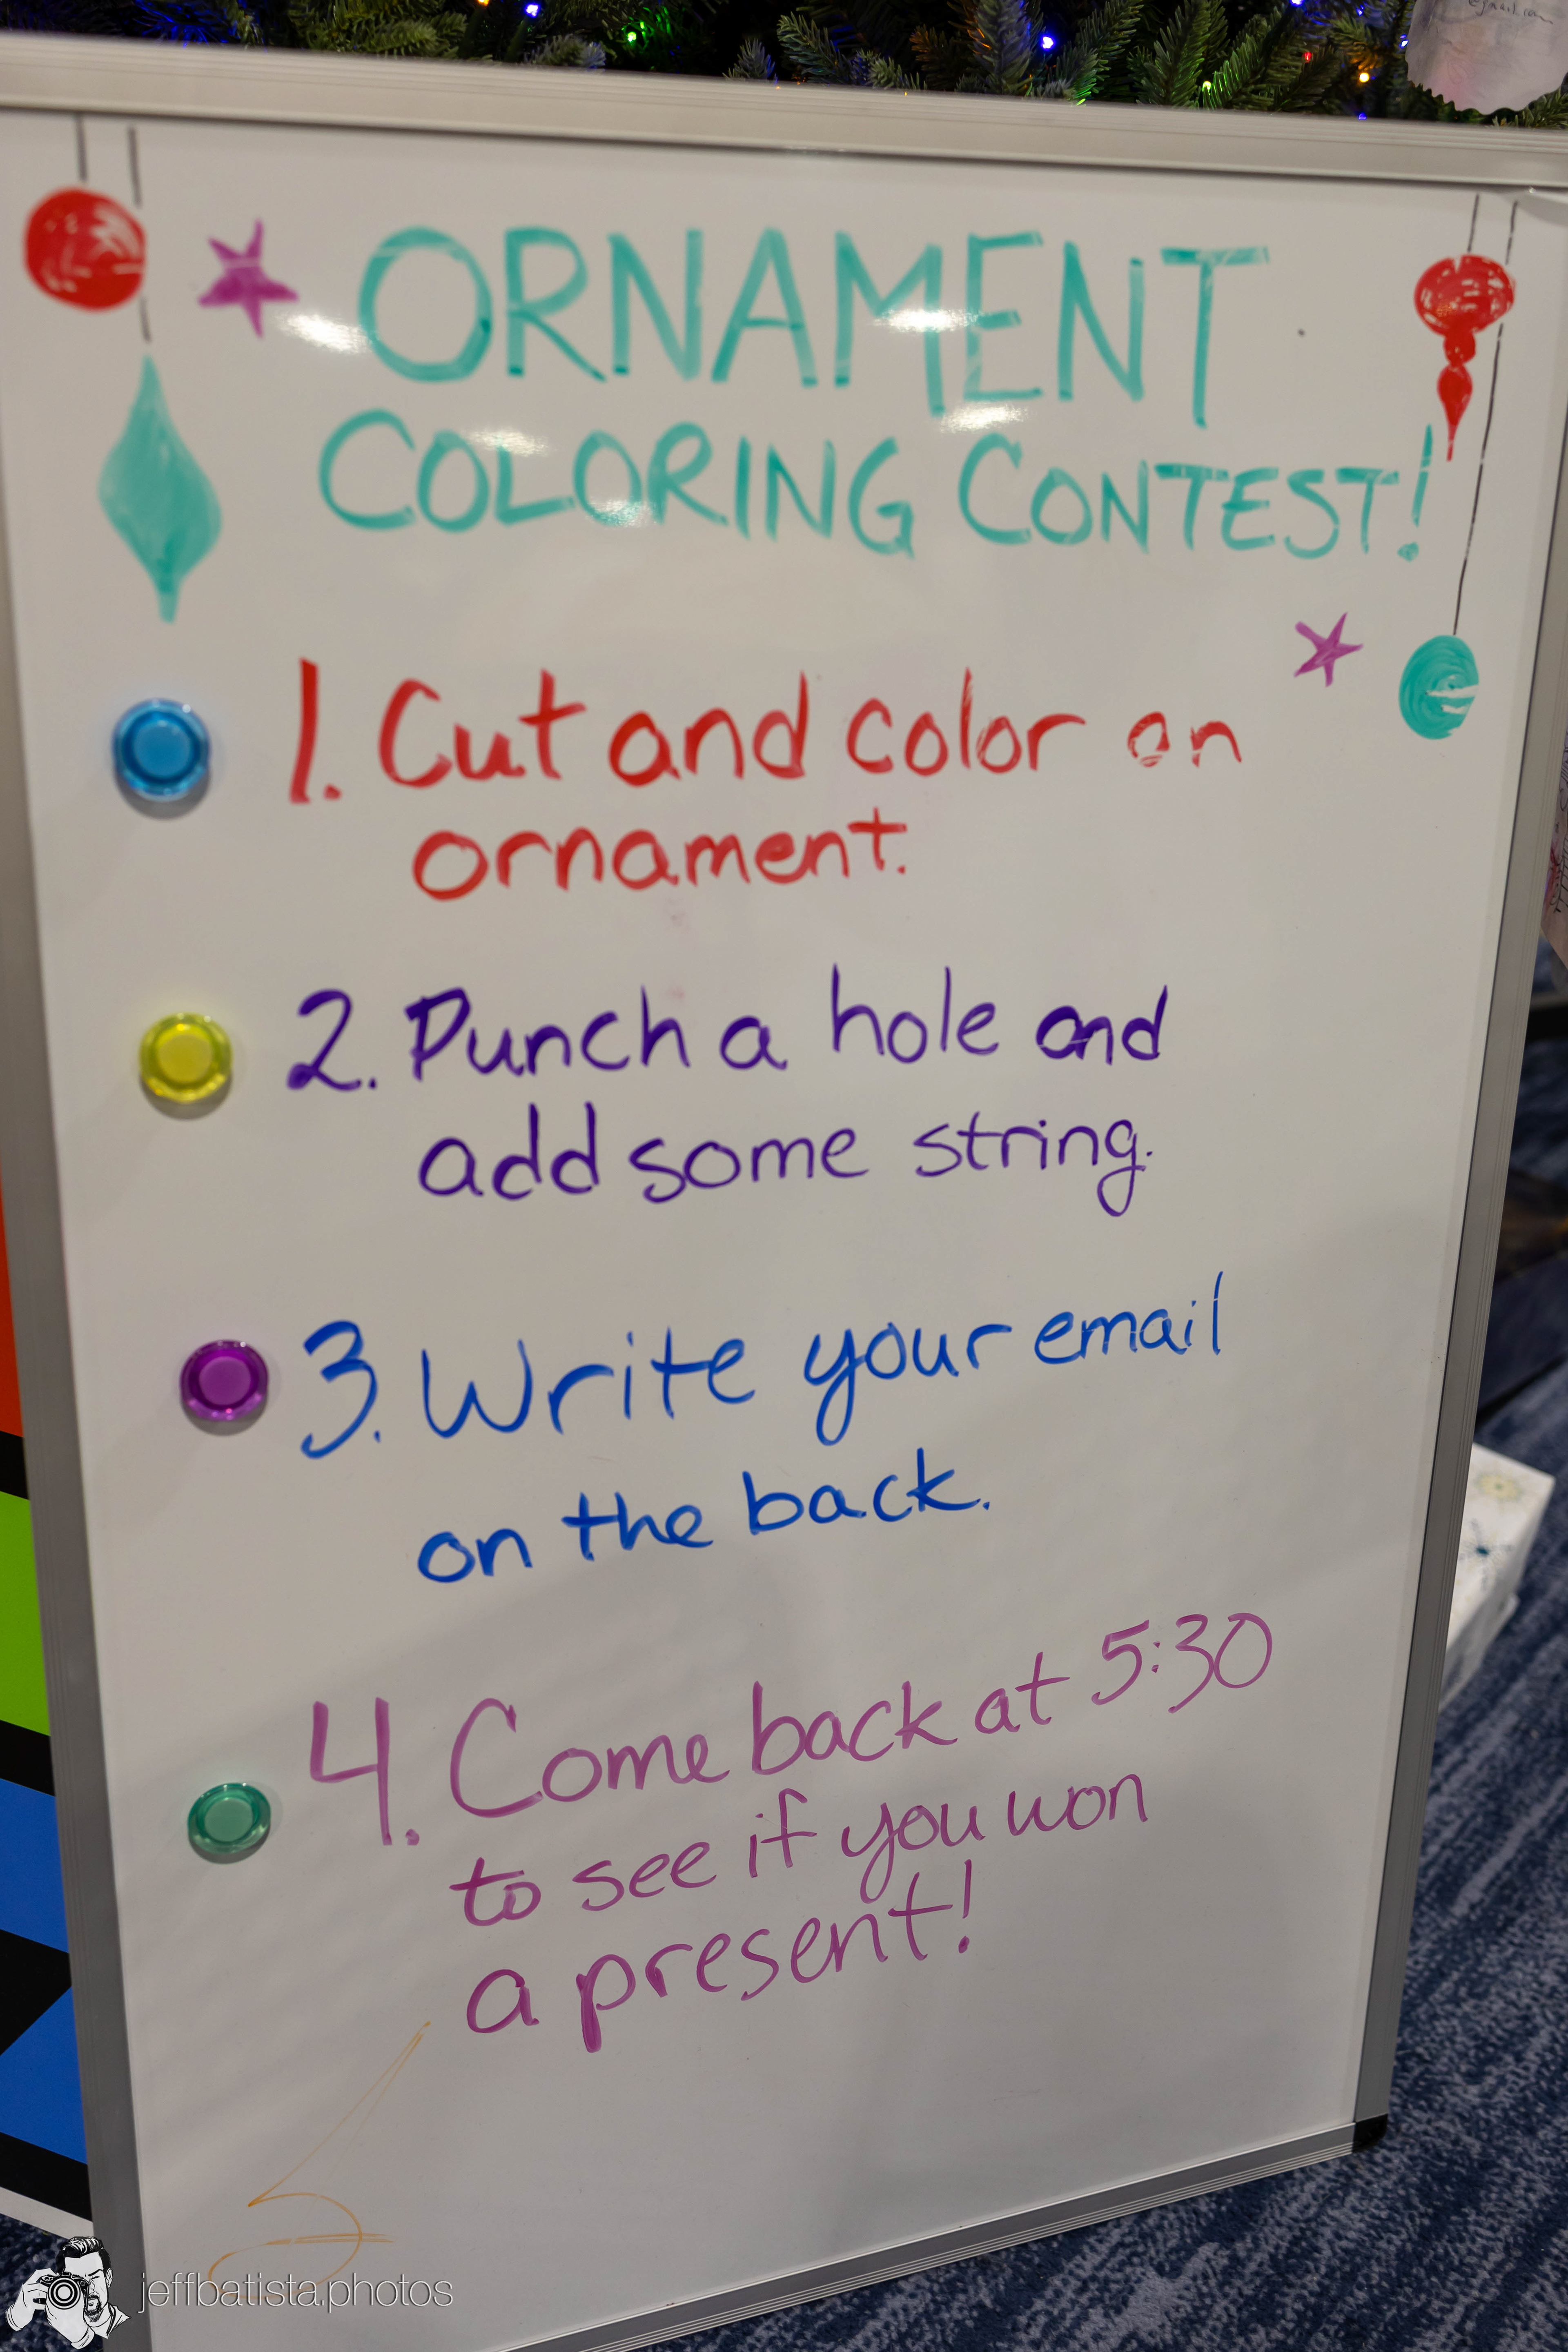 ORNAMENT
COLORING CONTEST!
1. Cut and color on
ornament.
2. Punch a hole and
add some string.
3. Write your email
on the back.
4. Come back at 5:30
to see if you won
a present!
jeffbatista.photos